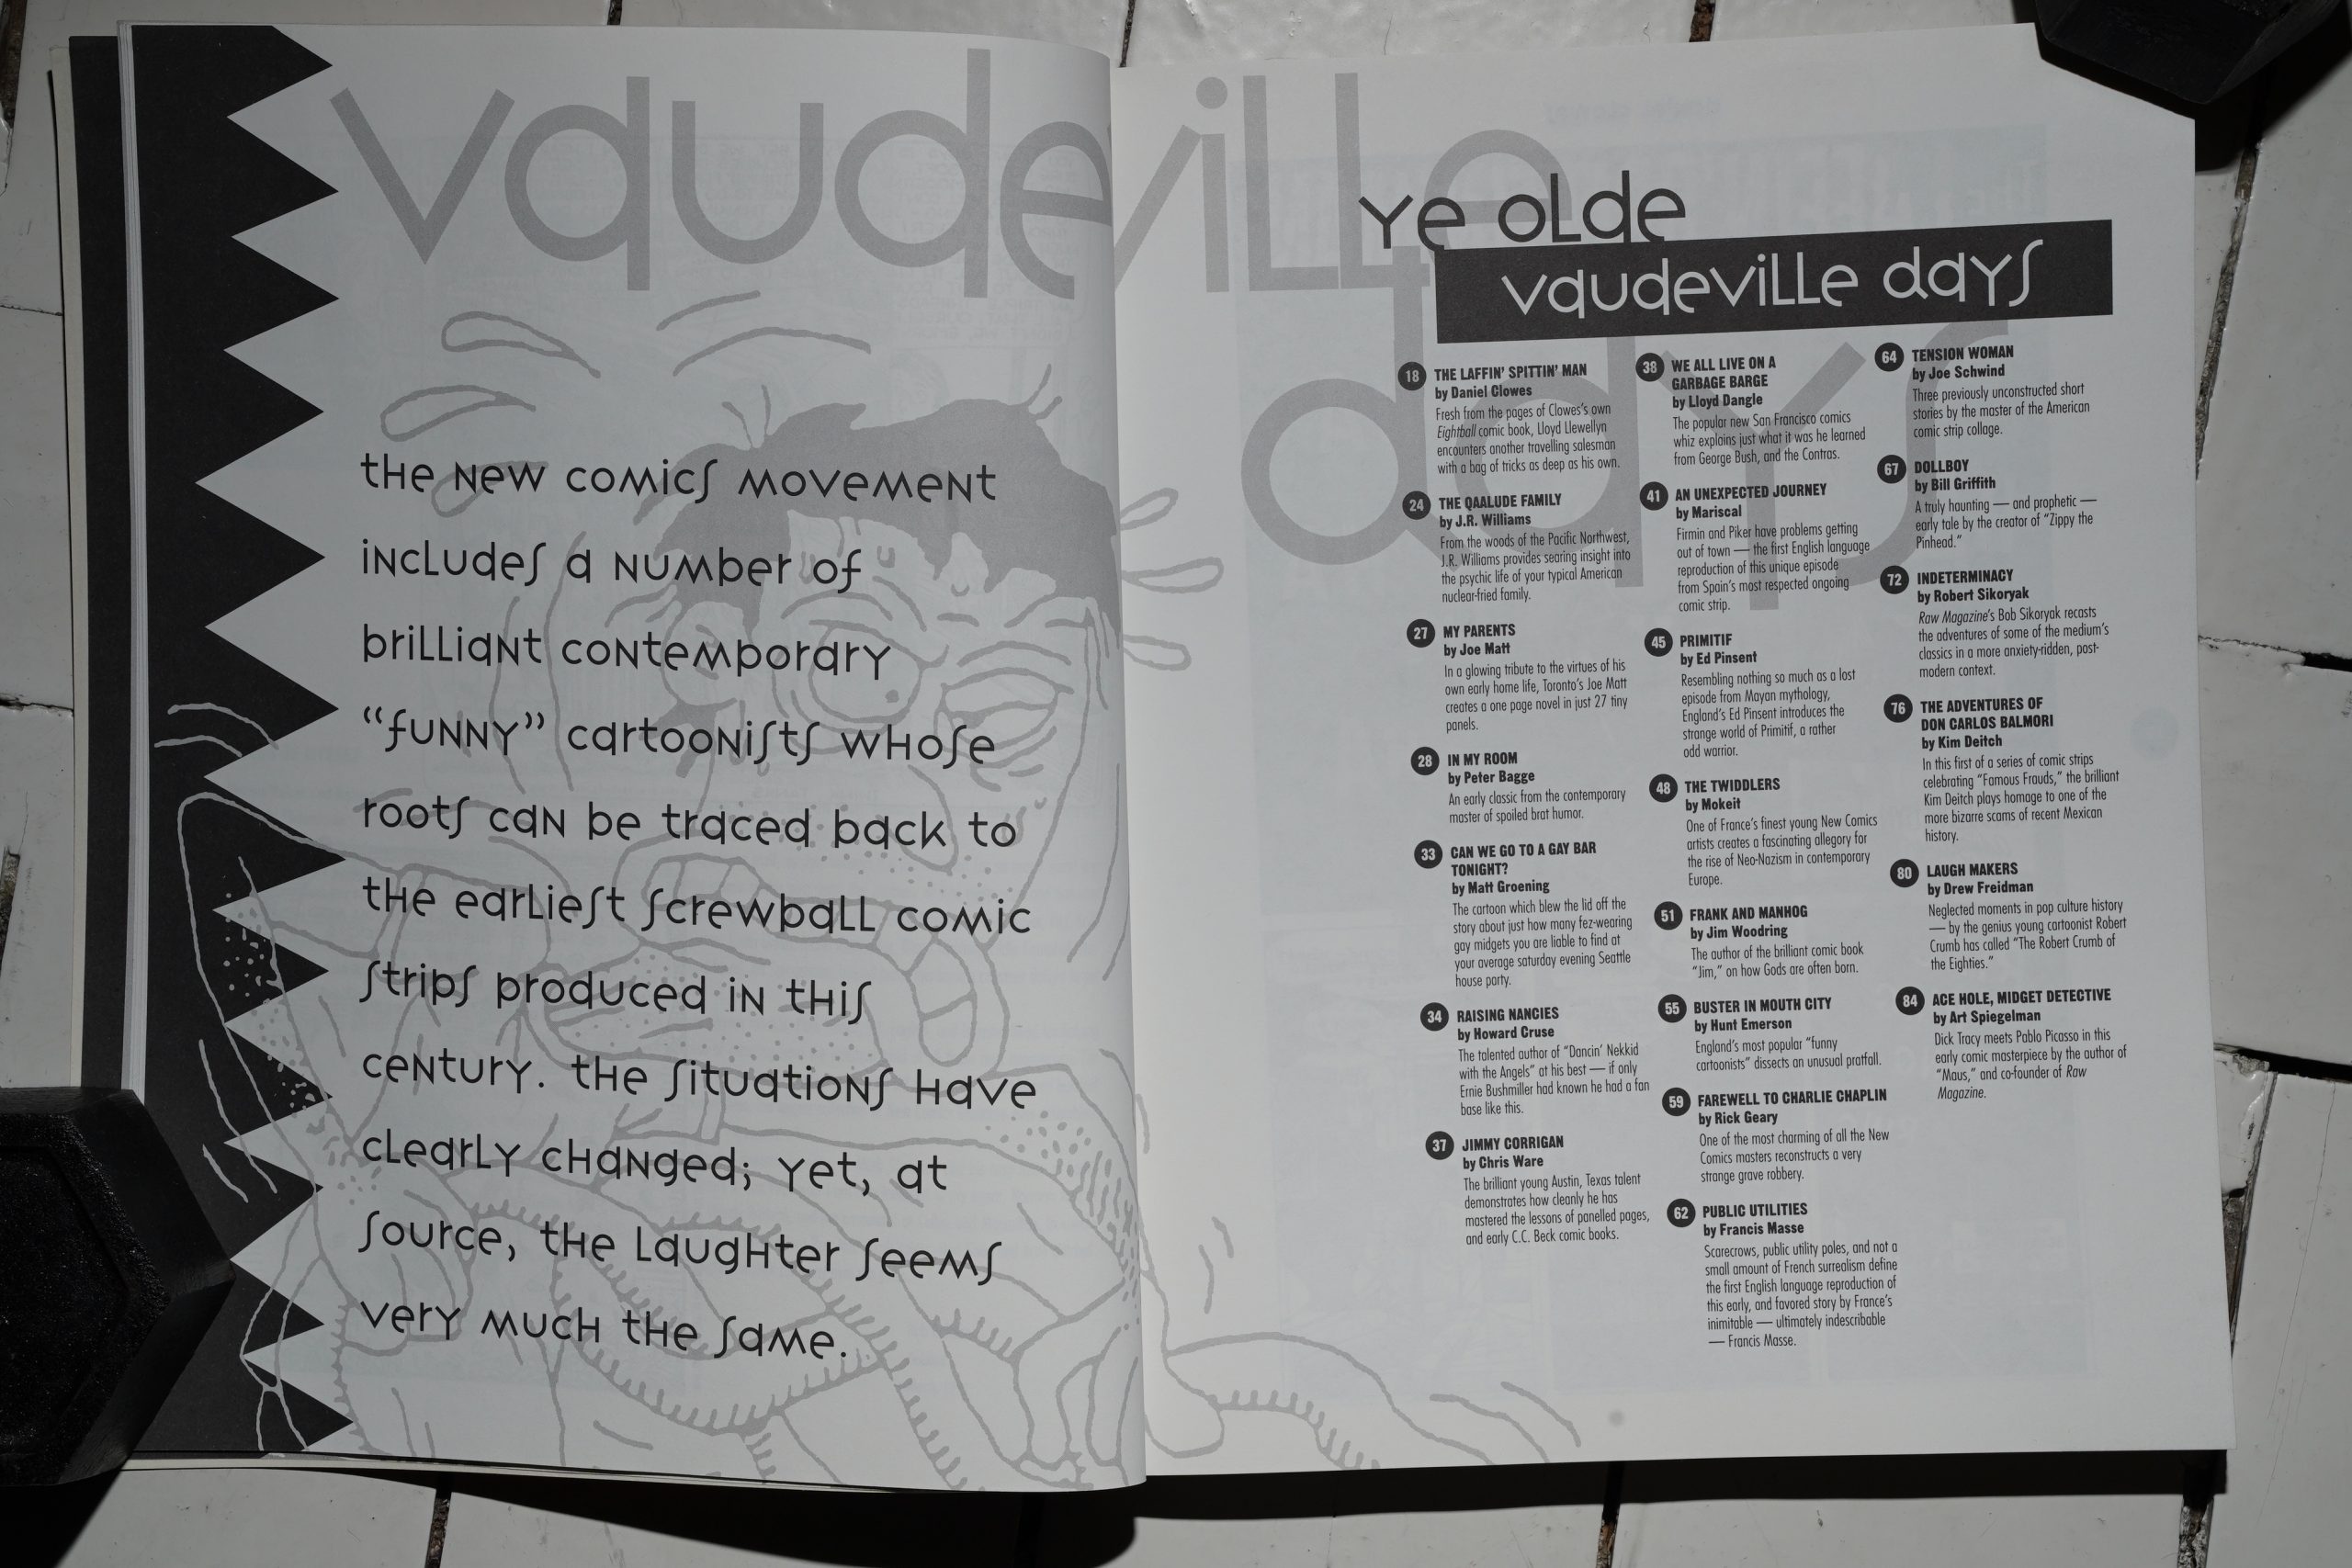 vaudeville
days
the new comics movement
includes a number of
brilliant contemporary
“funny” cartoonists whose
roots can be traced back to
the earliest screwball comic
strips produced in this
century. the situations have
clearly changed; yet, at
source, the laughter seems
very much the same.
ye olde
vaudeville days
18 THE LAFFIN’ SPITTIN’ MAN
by Daniel Clowes
Fresh from the pages of Clowes’s own
Eightball comic book, Lloyd Llewellyn
encounters another travelling salesman
with a bag of tricks as deep as his own.
24 THE QAALUDE FAMILY
by J.R. Williams
From the woods of the Pacific Northwest,
J.R. Williams provides searing insight into
the psychic life of your typical American
nuclear-fried family.
27 MY PARENTS
by Joe Matt
In a glowing tribute to the virtues of his
own early home life, Toronto’s Joe Matt
creates a one page novel in just 27 tiny
panels.
28 IN MY ROOM
by Peter Bagge
An early classic from the contemporary
master of spoiled brat humor.
33 CAN WE GO TO A GAY BAR
TONIGHT?
by Matt Groening
The cartoon which blew the lid off the
story about just how many fez-wearing
gay midgets you are liable to find at
your average saturday evening Seattle
house party.
34 RAISING NANCIES
by Howard Cruse
The talented author of “Dancin’ Nekkid
with the Angels” at his best — if only
Ernie Bushmiller had known he had a fan
base like this.
37 JIMMY CORRIGAN
by Chris Ware
The brilliant young Austin, Texas talent
demonstrates how cleanly he has
mastered the lessons of panelled pages,
and early C.C. Beck comic books.
38 WE ALL LIVE ON A
GARBAGE BARGE
by Lloyd Dangle
The popular new San Francisco comics
whiz explains just what it was he learned
from George Bush, and the Contras.
41 AN UNEXPECTED JOURNEY
by Mariscal
Firmin and Piker have problems getting
out of town — the first English language
reproduction of this unique episode
from Spain’s most respected ongoing
comic strip.
45 PRIMITIF
by Ed Pinsent
Resembling nothing so much as a lost
episode from Mayan mythology,
England’s Ed Pinsent introduces the
strange world of Primitif, a rather
odd warrior.
48 THE TWIDDLERS
by Mokeit
One of France’s finest young New Comics
artists creates a fascinating allegory for
the rise of Neo-Nazism in contemporary
Europe.
51 FRANK AND MANHOG
by Jim Woodring
The author of the brilliant comic book
“Jim,” on how Gods are often born.
55 BUSTER IN MOUTH CITY
by Hunt Emerson
England’s most popular “funny
cartoonists” dissects an unusual pratfall.
59 FAREWELL TO CHARLIE CHAPLIN
by Rick Geary
One of the most charming of all the New
Comics masters reconstructs a very
strange grave robbery.
62 PUBLIC UTILITIES
by Francis Masse
Scarecrows, public utility poles, and not a
small amount of French surrealism define
the first English language reproduction of
this early, and favored story by France’s
inimitable — ultimately indescribable
— Francis Masse.
64 TENSION WOMAN
by Joe Schwind
Three previously unconstructed short
stories by the master of the American
comic strip collage.
67 DOLLBOY
by Bill Griffith
A truly haunting — and prophetic —
early tale by the creator of “Zippy the
Pinhead.”
72 INDETERMINACY
by Robert Sikoryak
Raw Magazine’s Bob Sikoryak recasts
the adventures of some of the medium’s
classics in a more anxiety-ridden, post-
modern context.
76 THE ADVENTURES OF
DON CARLOS BALMORI
by Kim Deitch
In this first of a series of comic strips
celebrating “Famous Frauds,” the brilliant
Kim Deitch plays homage to one of the
more bizarre scams of recent Mexican
history.
80 LAUGH MAKERS
by Drew Freidman
Neglected moments in pop culture history
— by the genius young cartoonist Robert
Crumb has called “The Robert Crumb of
the Eighties.”
84 ACE HOLE, MIDGET DETECTIVE
by Art Spiegelman
Dick Tracy meets Pablo Picasso in this
early comic masterpiece by the author of
“Maus,” and co-founder of Raw
Magazine.